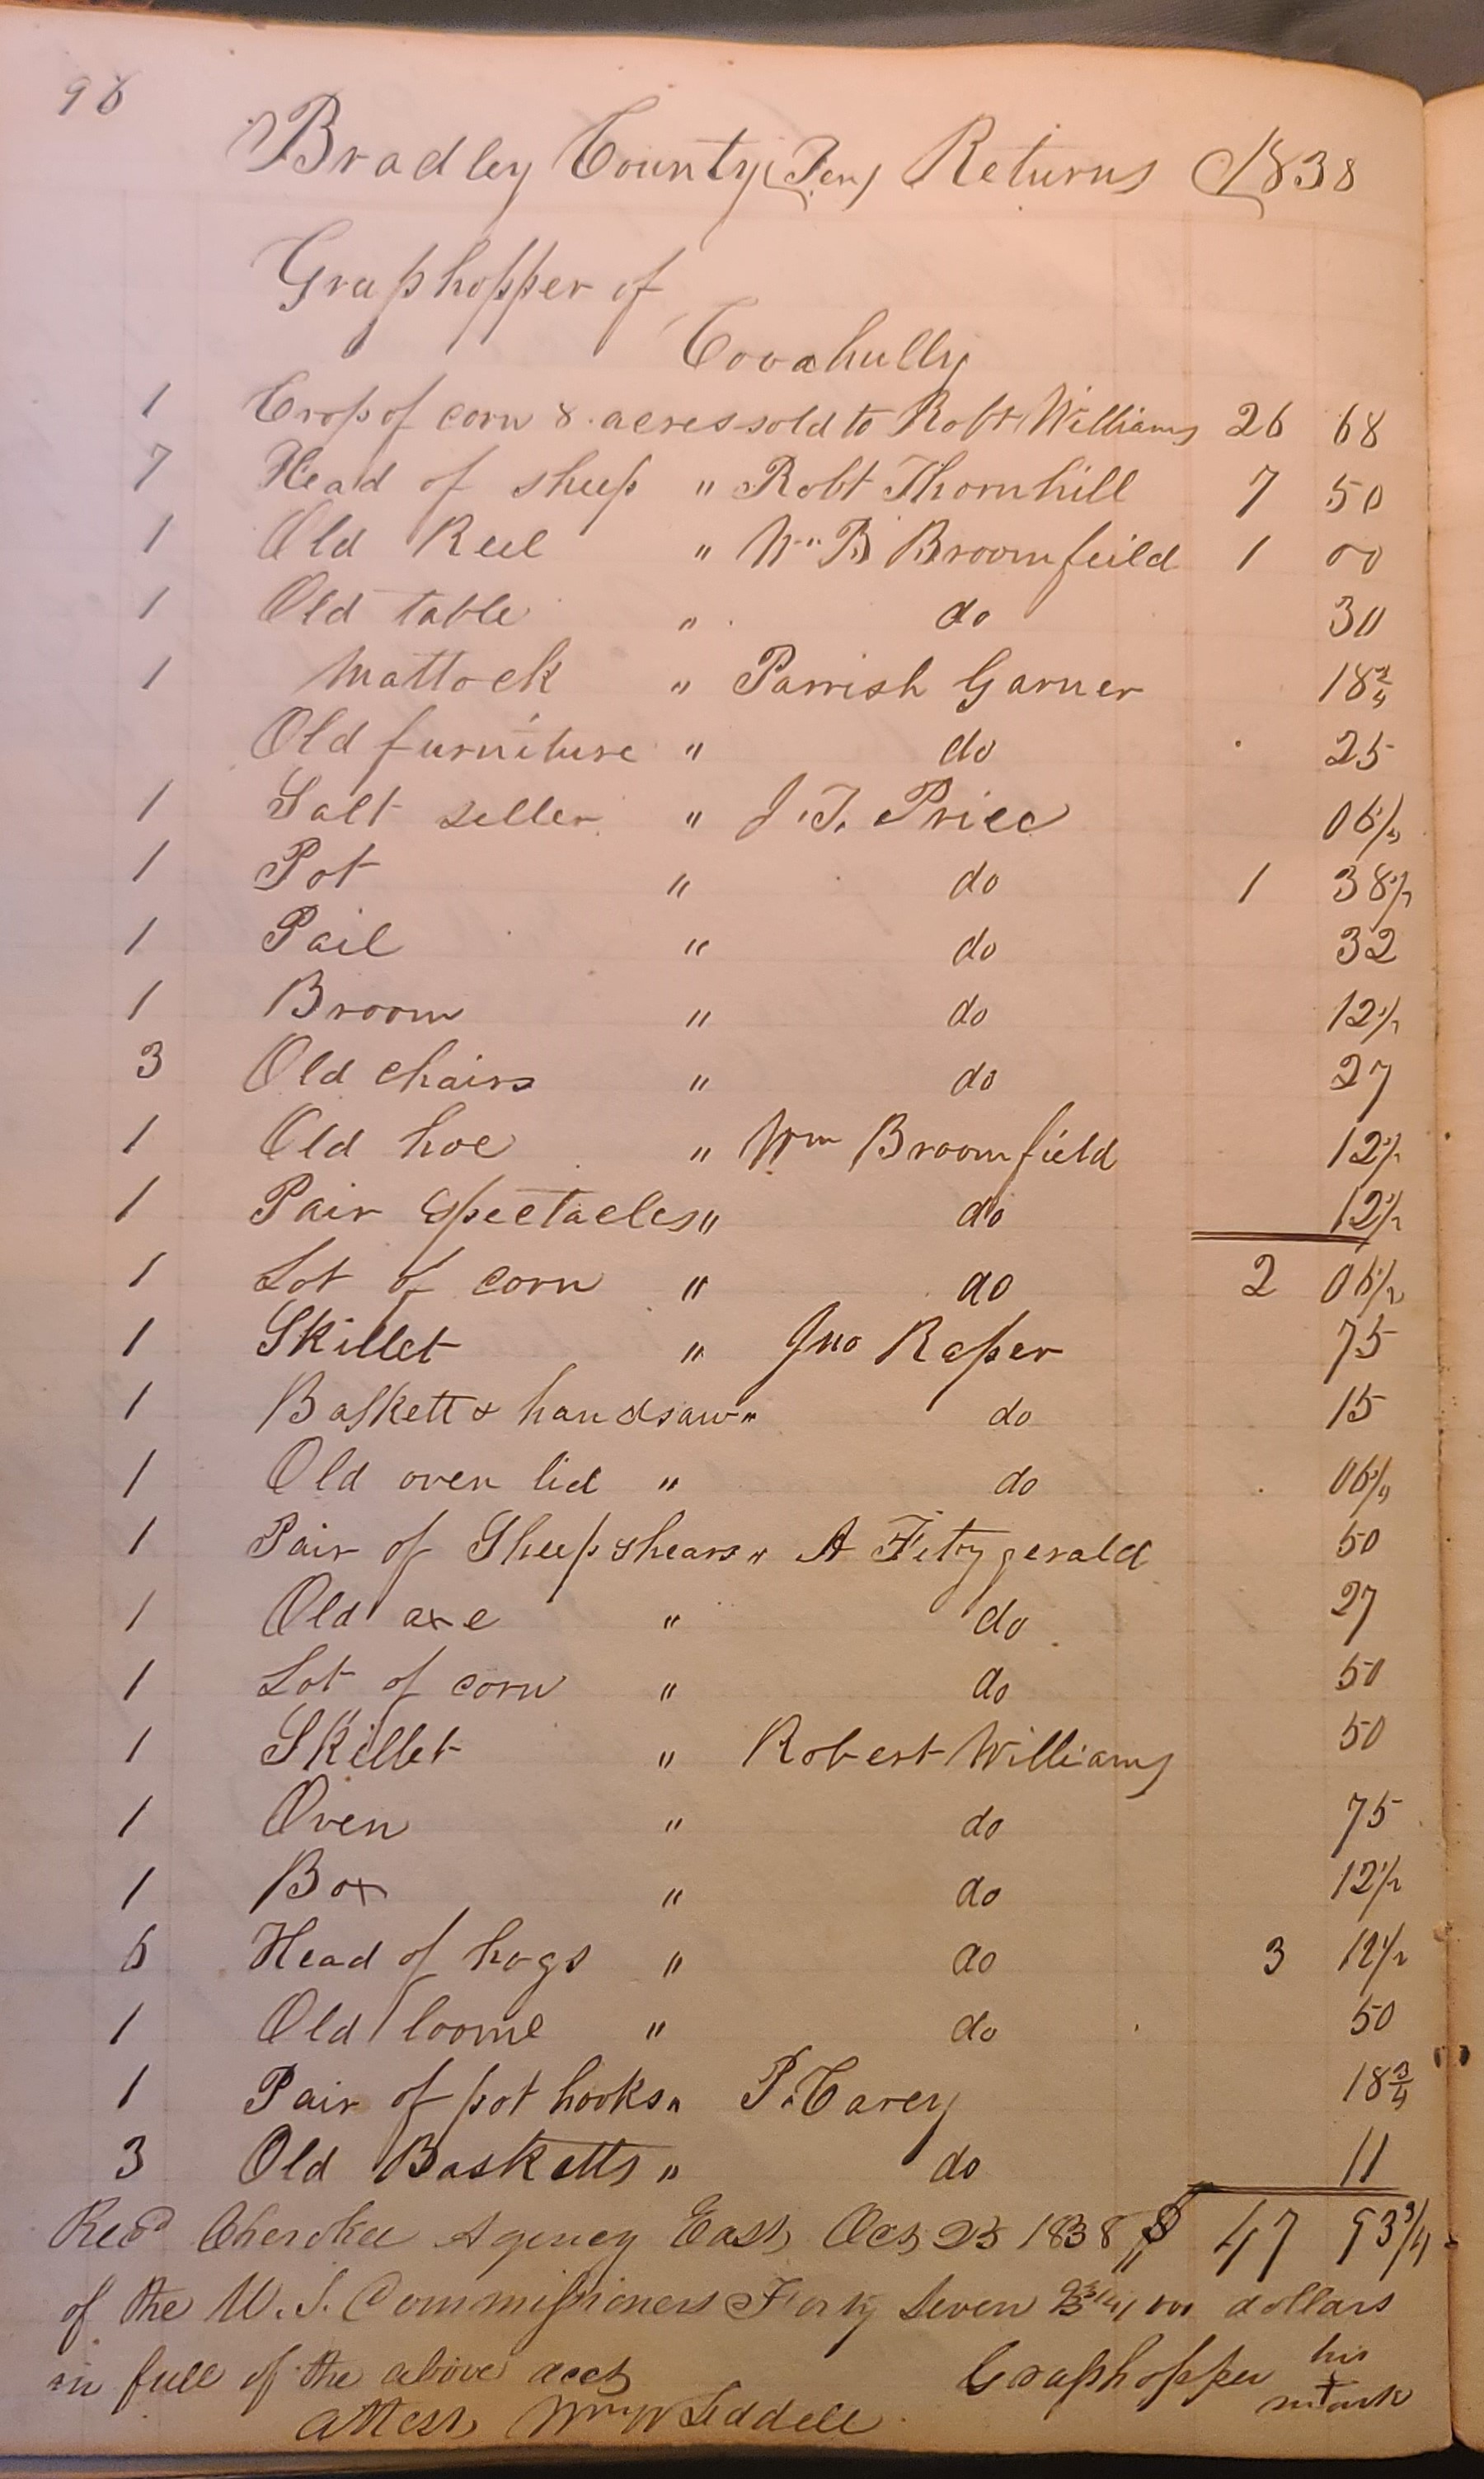 96
Bradley County (Ten) Returns 1838
Grasshopper of
Coosahully
1 Crop of corn 8 acres sold to Robt Williams 26 68
7 Head of sheep " Robt Thornhill 7 50
1 Old Reel " Wm B Broomfeild 1 00
1 Old table " do 30
1 Mattock " Parrish Garner 18 3/4
Old furniture " do 25
1 Salt seller " J. T. Price 06 1/4
1 Pot " do 1 38 1/2
1 Pail " do 32
1 Broom " do 12 1/2
3 Old chairs " do 27
1 Old hoe " Wm Broomfield 12 1/2
1 Pair Spectacles " do 12 1/2
1 Lot of corn " do 2 06 1/2
1 Skillet " Jno Raper 75
1 Baskett & handsaw " do 15
1 Old oven lid " do 06 1/4
1 Pair of Sheep shears " A Fitzgerald 50
1 Old axe " do 27
1 Lot of corn " do 50
1 Skillet " Robert Williams 50
1 Oven " do 75
1 Box " do 12 1/2
6 Head of hogs " do 3 12 1/2
1 Old loome " do 50
1 Pair of pot hooks " P. Carey 18 3/4
3 Old Basketts " do 11
Recd Cherokee Agency East, Oct 23 1838 " $ 47 93 3/4
of the U. S. Commissioners Forty Seven 93 3/4/100 dollars
in full of the above acct Grasshopper his x mark
attest, Wm W Liddell